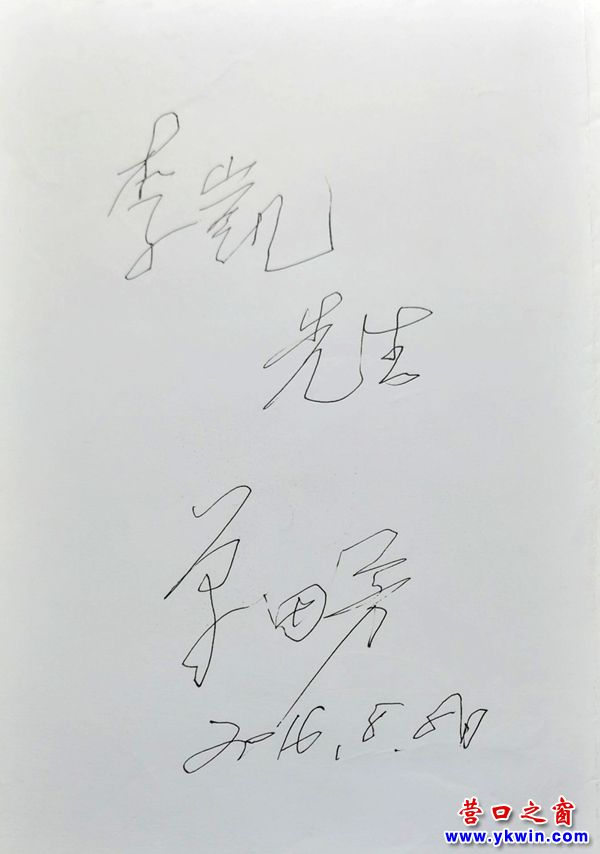 李凯
先生
单田芳
2016.8.8日
营口之窗
www.ykwin.com